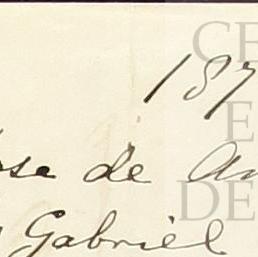 187
de
Gabriel
CE
E
DE